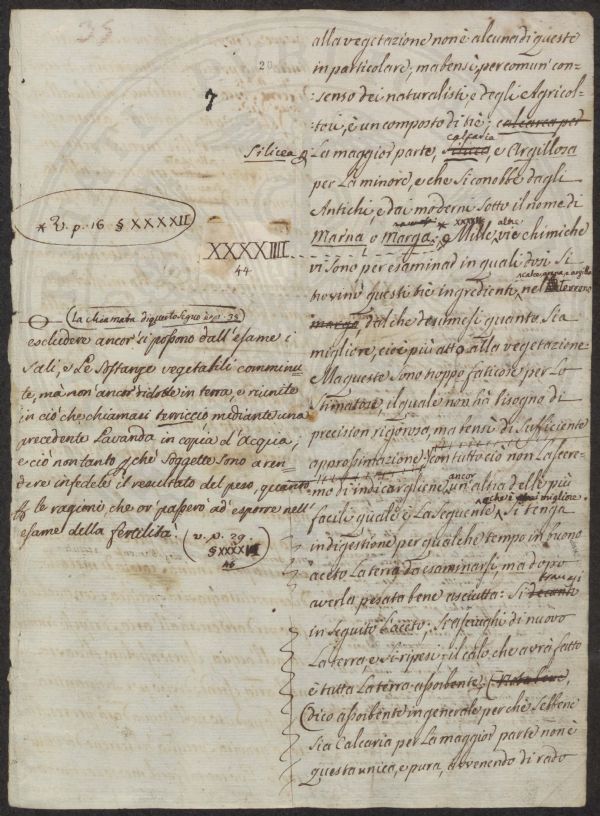 35
20
7
alla vegetazione non è alcuna di queste
in particolare, ma bensì, per comun con-
:senso dei naturalisti, e degli Agricol-
:tori, è un composto di trè: calcarea per
calcaria
Silicea
La maggior parte, e Argillosa
per La minore, e che Si conobbe dagli
Antichi, e dai moderni Sotto il nome di
XXXXII altre
Marna o Marga. Mille vie chimiche
* V. p. 16 § XXXXII
XXXXIIII
44
vi Sono per esaminar in quali dosi Si
trovino questi trè ingredienti nel Terreno
dal che desumesi quanto Sia
migliore, cioè più atto alla vegetazione
Ma queste Sono troppo faticose per Lo
Stimatore, il quale non hà bisogno di
precision rigorosa, ma bensì di Sufficiente
approssimazione: Con tutto ciò non Lasciere-
ancor
mo di indicargliene un'altra delle più
che è migliore
facili quale è La Seguente. Si tenga
indigestione per qualche tempo in buono
aceto La terra da esaminarsi, ma dopo
averla pesata bene asciutta: Si decanti
travasi
in Seguito L'aceto; Si asciughi di nuovo
La terra, e Si ripesi: il calo che avrà fatto
è tutta La terra assorbente.
(Dico assorbente in generale perchè Sebbene
Sia Calcaria per La maggior parte non è
questa unica, e pura, avvenendo di rado
(la chiamata di questo Segno è a p. 35)
escludere ancor si possono dall'esame i
Sali, e Le Sostanze vegetabili comminu-
te, mà non ancor ridotte in terra, e riunite
in ciò che chiamasi terriccio mediante una
precedente Lavanda in copia d'acqua,
e ciò non tanto pchè Soggette Sono a ren-
dere infedele il resultato del peso, quanto
p le ragioni che or passerò ad esporre nell'
esame della fertilità.
(v. p. 29.
§ XXXXVI
46